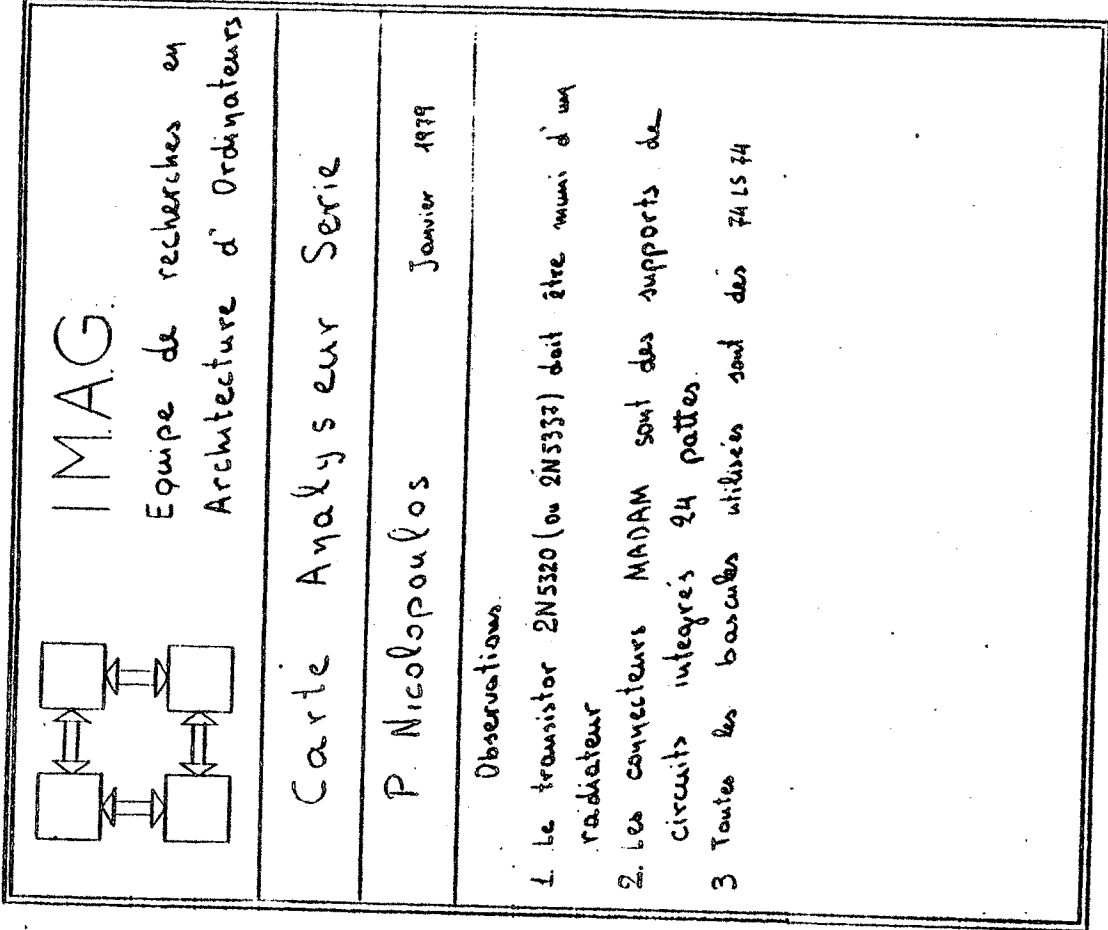 I.M.A.G.
Equipe de recherches en
Architecture d'Ordinateurs
Carte Analyseur Serie
P. Nicolopoulos Janvier 1979
Observations.
1. Le transistor 2N5320 (ou 2N5337) doit être muni d'un
radiateur
2. Les connecteurs MADAM sont des supports de
circuits integrés 24 pattes.
3 Toutes les bascules utilisées sont des 74LS74